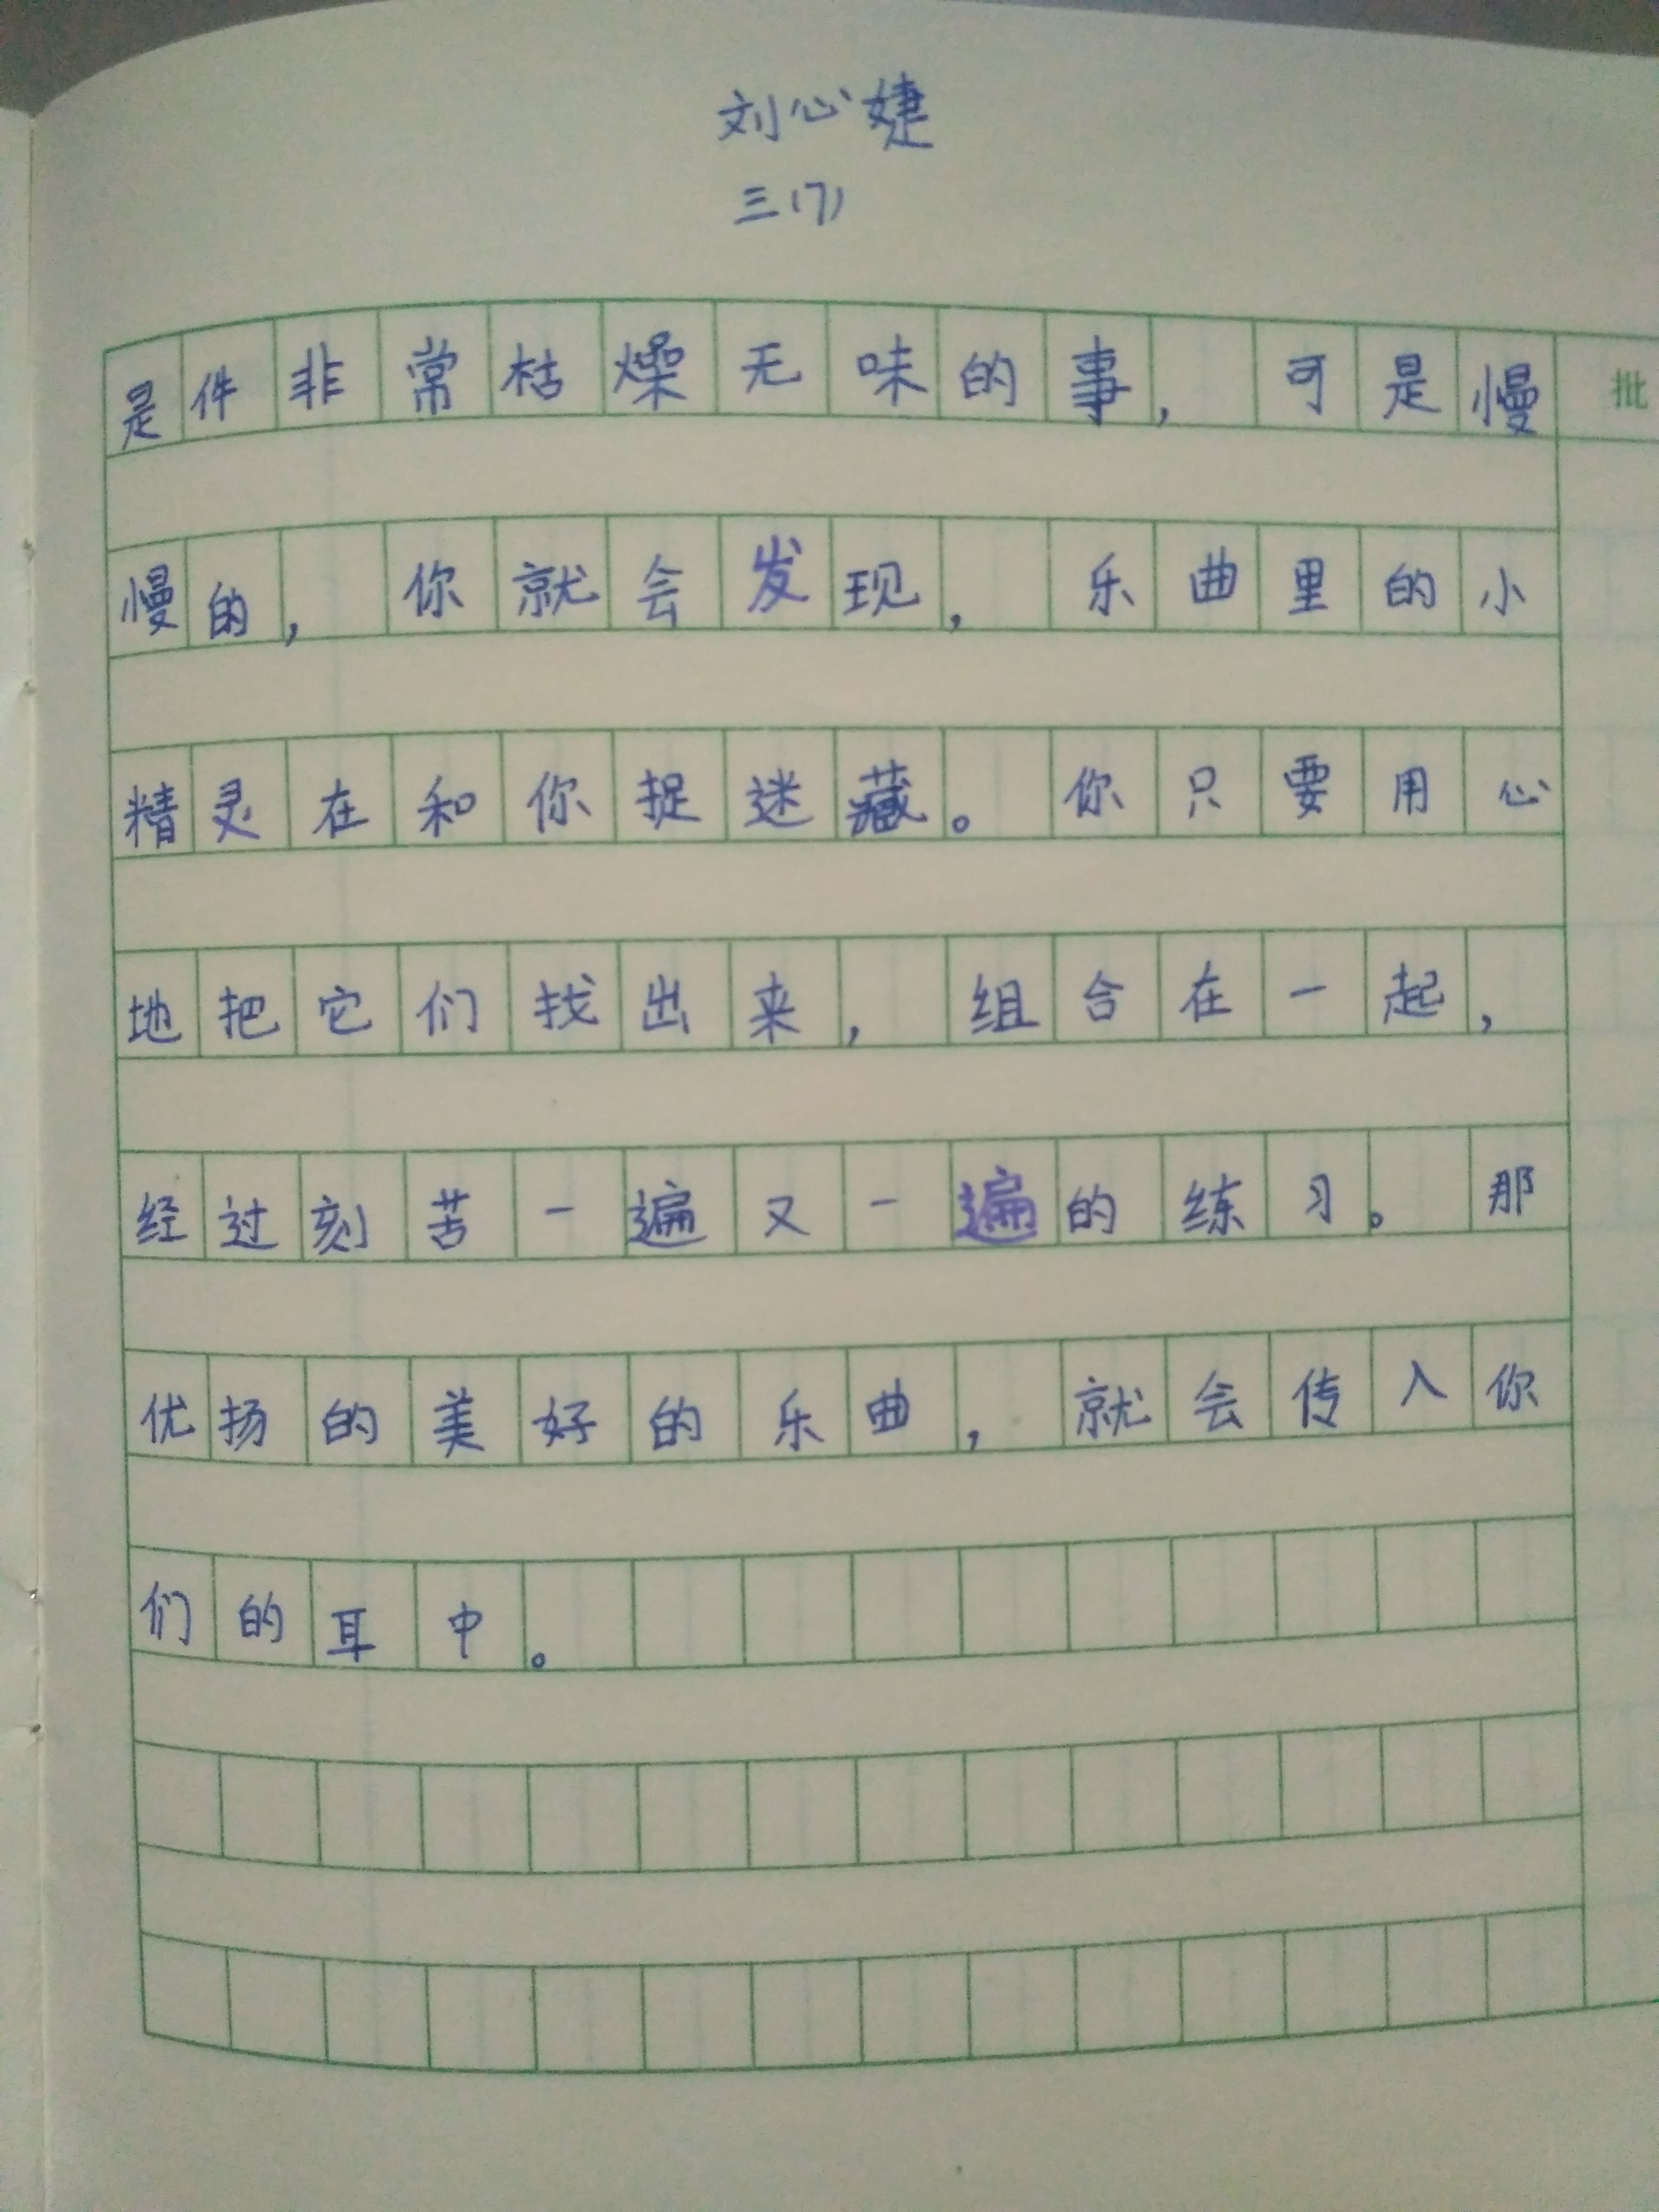 刘心婕
三(7)
是件非常枯燥无味的事，可是慢
批
慢的，你就会发现，乐曲里的小
精灵在和你捉迷藏。你只要用心
地把它们找出来，组合在一起，
经过刻苦一遍又一遍的练习。那
优扬的美好的乐曲，就会传入你
们的耳中。